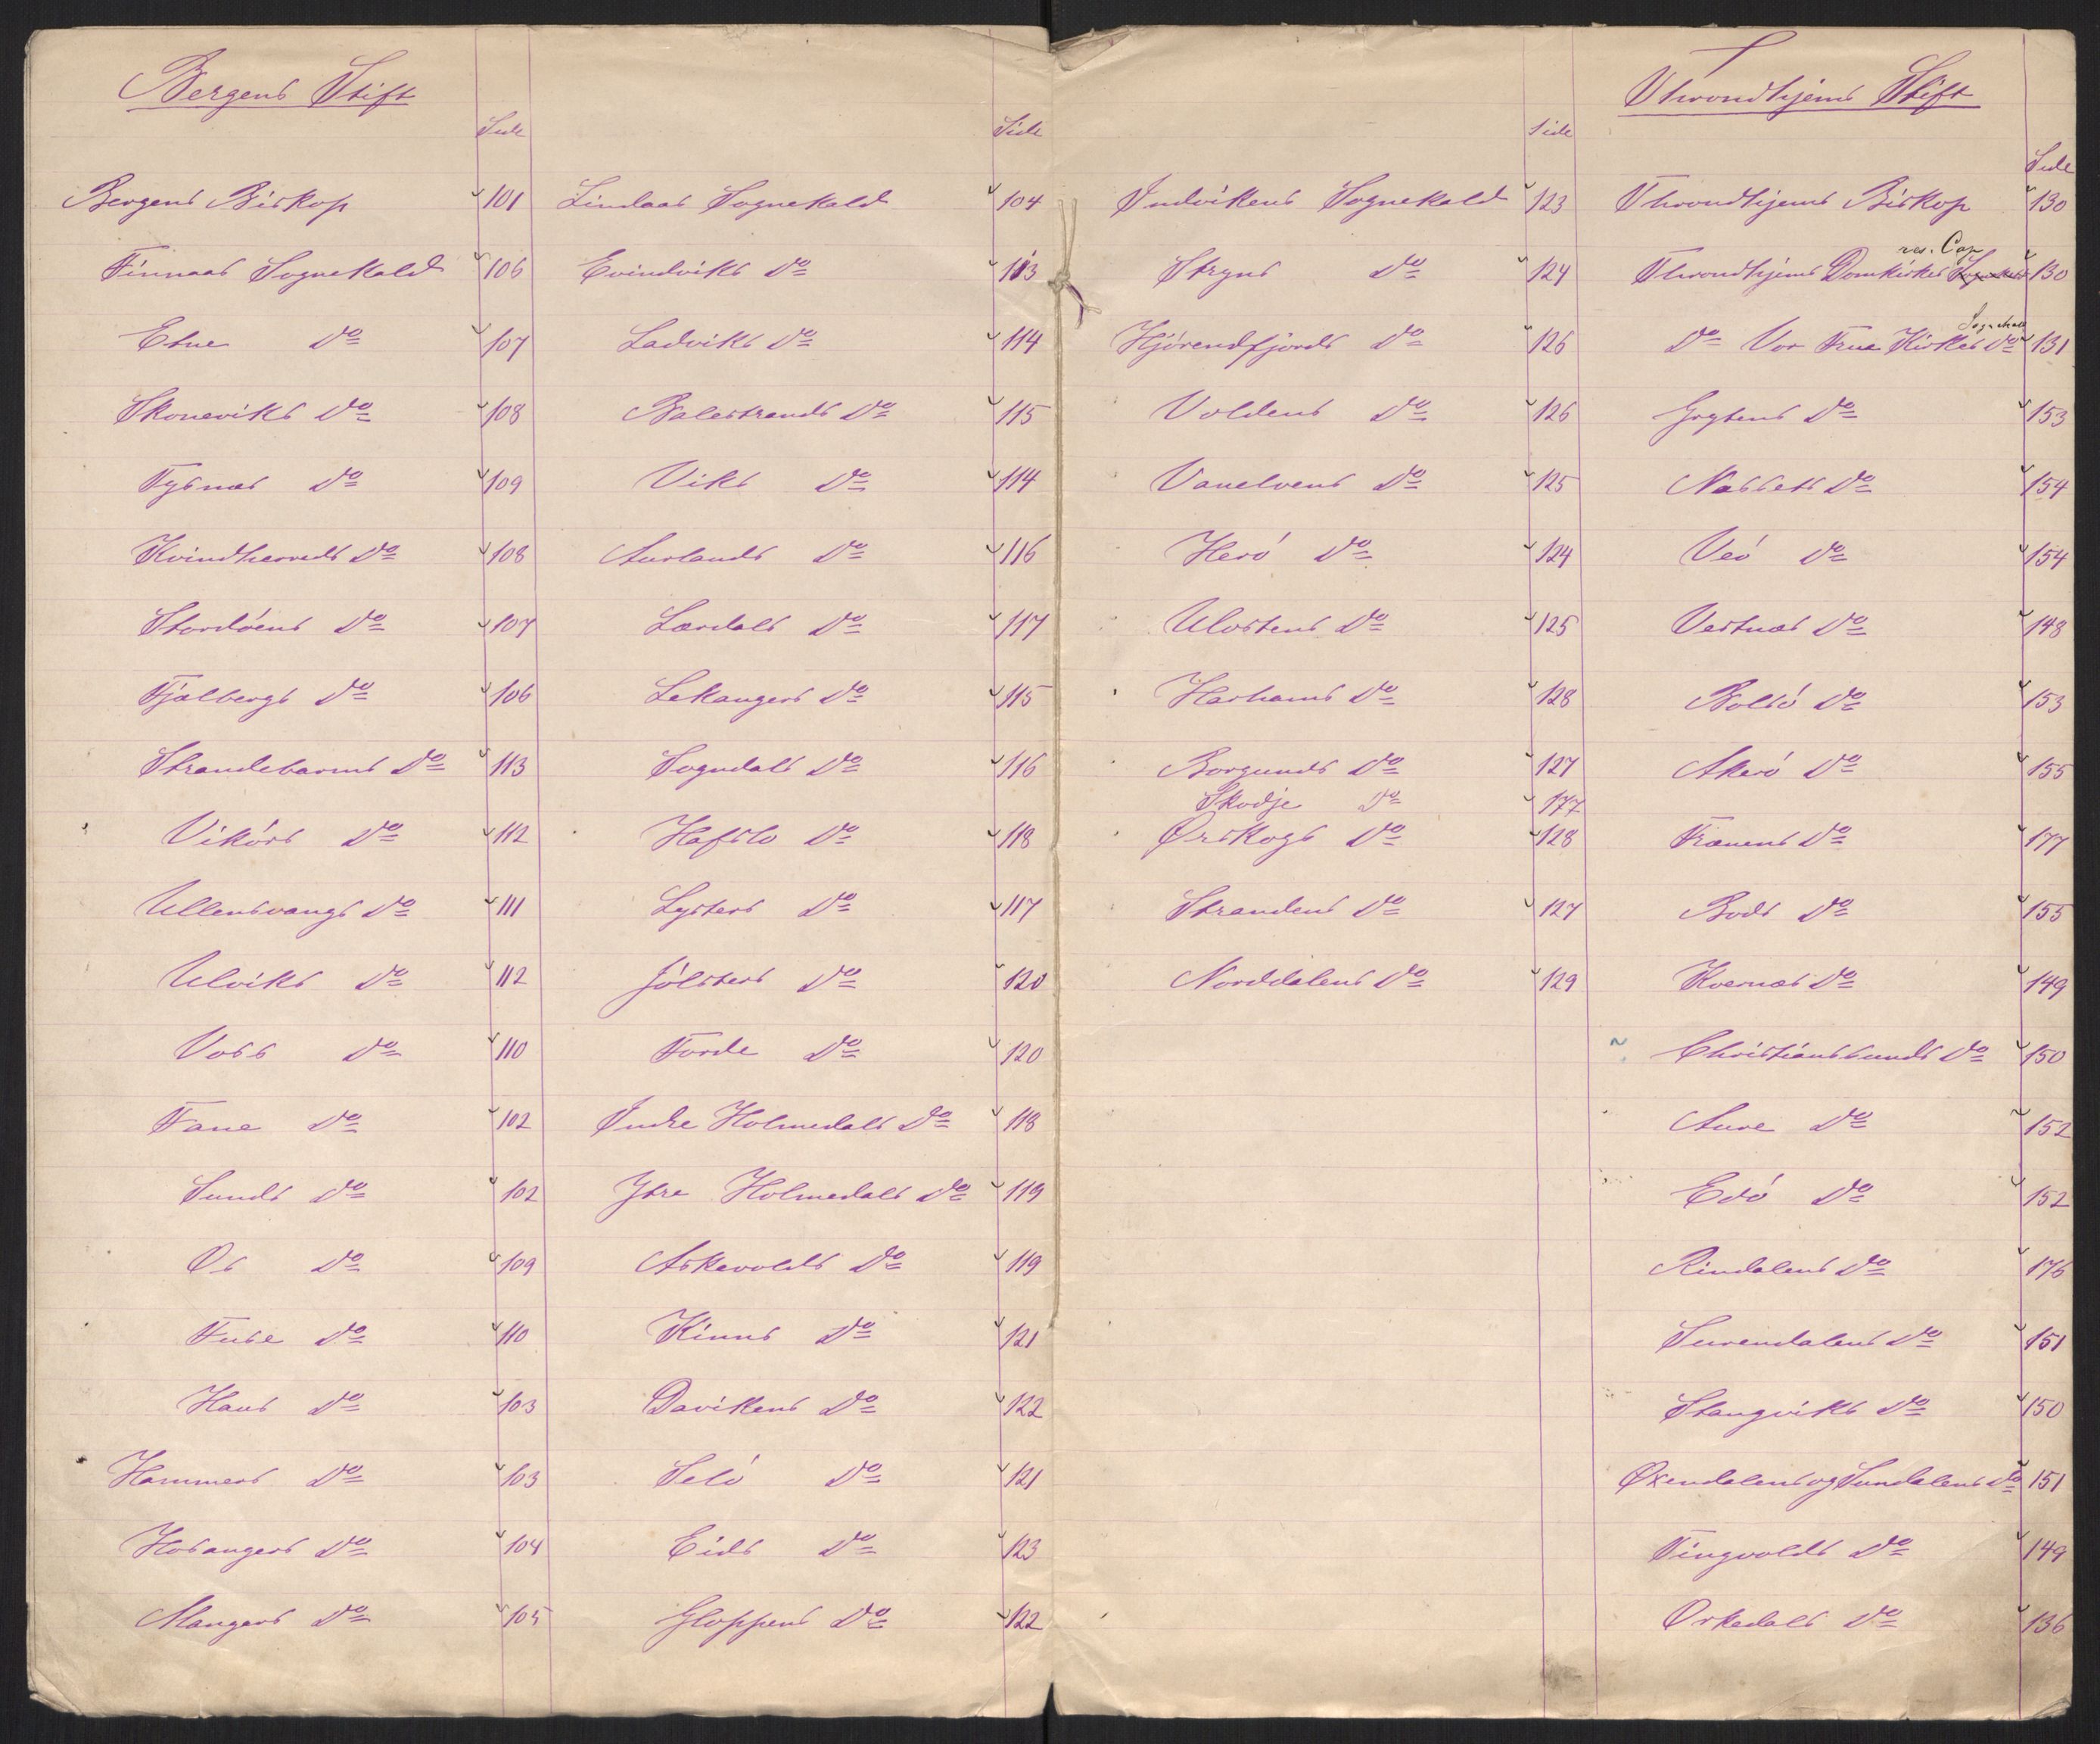 Bergens Stift
Side
Bergens Biskop 101
Finnaas Sognekald 106
Etne Do 107
Skoneviks Do 108
Tysnæs Do 109
Kvindherreds Do 108
Stordöens Do 107
Fjælbergs Do 106
Strandebarms Do 113
Vikörs Do 112
Ullensvangs Do 111
Ulviks Do 112
Voss Do 110
Fane Do 102
Sunds Do 102
Os Do 109
Fuse Do 110
Haus Do 103
Hammers Do 103
Hosangers Do 104
Mangers Do 105
Side
Lindaas Sognekald 104
Evindviks Do 113
Ladviks Do 114
Balestrands Do 115
Viks Do 114
Aurlands Do 116
Lærdals Do 117
Lekangers Do 115
Sogndals Do 116
Hafslo Do 118
Lysters Do 117
Jölsters Do 120
Förde Do 120
Indre Holmedals Do 118
Ytre Holmedals Do 119
Askevolds Do 119
Kinns Do 121
Davikens Do 122
Selö Do 121
Eids Do 123
Gloppens Do 122
Side
Indvikens Sognekald 123
Stryns Do 124
Hjörendfjords Do 126
Voldens Do 126
Vanelvens Do 125
Herö Do 124
Ulvstens Do 125
Harhams Do 128
Borgunds Do 127
Skodje Do 177
Ørskogs Do 128
Strandens Do 127
Norddalens Do 129
Throndhjems Stift
Side
Throndhjems Biskop 130
res. Cap
Throndhjems Domkirkes 130
Sognekald
Do Vor Frue Kirkes Do 131
Grytens Do 153
Næssets Do 154
Veö Do 154
Vestnæs Do 148
Bolsö Do 153
Akerö Do 155
Frænens Do 177
Bods Do 155
Kvernæs Do 149
Christianssunds Do 150
Aure Do 152
Edö Do 152
Rindalens Do 176
Surendalens Do 151
Stangviks Do 150
Øxendalens og Sundalens Do 151
Tingvolds Do 149
Orkedals Do 136